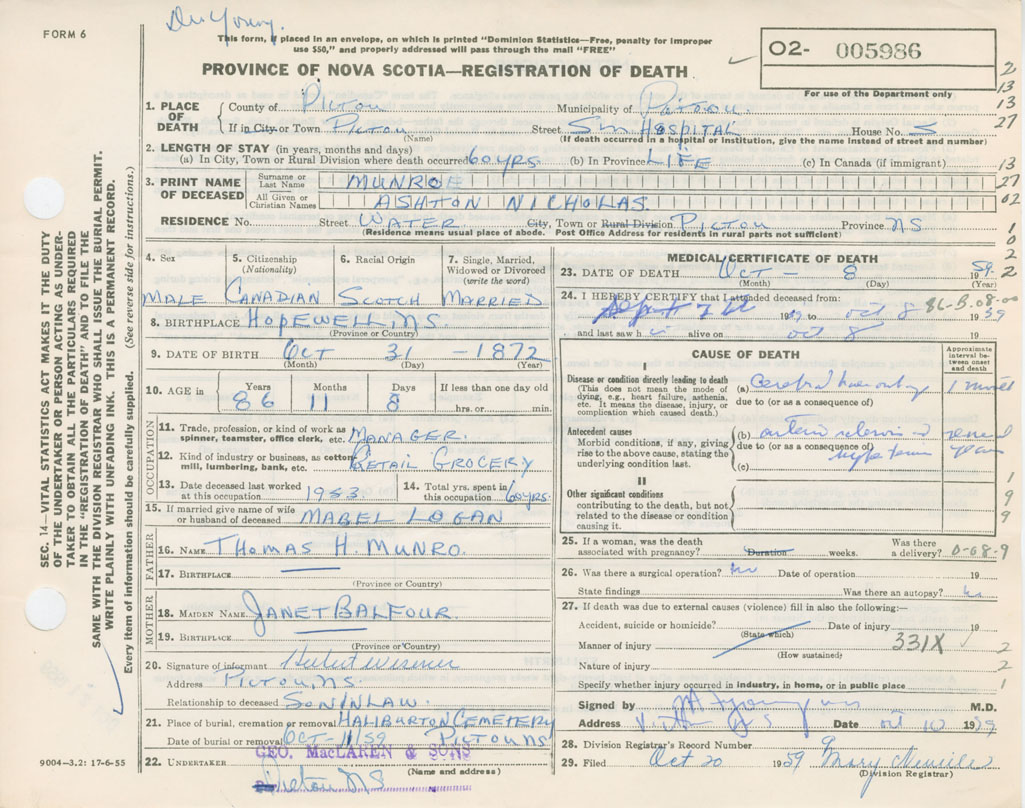 Dr Young.
FORM 6
This form, if placed in an envelope, on which is printed "Dominion Statistics—Free, penalty for improper
use $50," and properly addressed will pass through the mail "FREE"
O2- 005986
For use of the Department only
PROVINCE OF NOVA SCOTIA—REGISTRATION OF DEATH
2
13
13
27
13
27
02
1
0
2
2
1. PLACE OF DEATH { County of Pictou Municipality of Pictou.
If in City or Town Pictou Street Sm Hospital House No. S
(Name) (If death occurred in a hospital or institution, give the name instead of street and number)
2. LENGTH OF STAY (in years, months and days)
(a) In City, Town or Rural Division where death occurred 60 YRS. (b) In Province LIFE (c) In Canada (if immigrant)
3. PRINT NAME OF DECEASED { Surname or Last Name MUNROE
All Given or Christian Names ASHTON NICHOLAS
RESIDENCE No. Street WATER City, Town or Rural Division PICTOU Province NS
(Residence means usual place of abode. Post Office Address for residents in rural parts not sufficient)
SEC. 14—VITAL STATISTICS ACT MAKES IT THE DUTY
OF THE UNDERTAKER OR PERSON ACTING AS UNDER-
TAKER TO OBTAIN ALL THE PARTICULARS REQUIRED
IN THE "REGISTRATION OF DEATH" AND TO FILE THE
SAME WITH THE DIVISION REGISTRAR WHO SHALL ISSUE THE BURIAL PERMIT.
WRITE PLAINLY WITH UNFADING INK. THIS IS A PERMANENT RECORD.
Every item of information should be carefully supplied. (See reverse side for instructions.)
4. Sex
MALE
5. Citizenship
(Nationality)
CANADIAN
6. Racial Origin
SCOTCH
7. Single, Married,
Widowed or Divorced
(write the word)
MARRIED
8. BIRTHPLACE HOPEWELL, N.S.
(Province or Country)
9. DATE OF BIRTH Oct 31 - 1872
(Month) (Day) (Year)
10. AGE in Years Months Days If less than one day old
86 11 8 hrs. or min.
OCCUPATION
11. Trade, profession, or kind of work as
spinner, teamster, office clerk, etc. MANAGER.
12. Kind of industry or business, as cotton-
mill, lumbering, bank, etc. RETAIL GROCERY
13. Date deceased last worked
at this occupation 1953.
14. Total yrs. spent in
this occupation 60 yrs.
15. If married give name of wife
or husband of deceased MABEL LOGAN
FATHER
16. NAME THOMAS H. MUNRO.
17. BIRTHPLACE
(Province or Country)
MOTHER
18. MAIDEN NAME JANET BALFOUR.
19. BIRTHPLACE
(Province or Country)
20. Signature of informant
Address PICTOU, NS.
Relationship to deceased SON IN LAW
21. Place of burial, cremation or removal HALIBURTON CEMETERY
Date of burial or removal OCT-11/59 PICTOU NS
22. UNDERTAKER GEO. MacLAREN & SONS
(Name and address)
Pictou NS
9004—3.2: 17-6-55
MEDICAL CERTIFICATE OF DEATH
23. DATE OF DEATH Oct - 8 1959.
(Month) (Day) (Year)
24. I HEREBY CERTIFY that I attended deceased from:
Sept 19 to oct 8 1959
86-B.08.00
and last saw h alive on oct 8 19
CAUSE OF DEATH
Approximate interval between onset and death
I
Disease or condition directly leading to death
(This does not mean the mode of
dying, e.g., heart failure, asthenia,
etc. It means the disease, injury, or
complication which caused death.)
(a) Cerebral haemorrhage
due to (or as a consequence of)
Antecedent causes
Morbid conditions, if any, giving
rise to the above cause, stating the
underlying condition last.
(b)
due to (or as a consequence of)
(c)
II
Other significant conditions
contributing to the death, but not
related to the disease or condition
causing it.
1
9
9
25. If a woman, was the death
associated with pregnancy? Duration weeks. Was there
a delivery? 0-68-9
26. Was there a surgical operation? no Date of operation 19
State findings Was there an autopsy? no
27. If death was due to external causes (violence) fill in also the following:—
Accident, suicide or homicide? Date of injury 19
(State which)
Manner of injury 331X 2
(How sustained)
Nature of injury 2
Specify whether injury occurred in industry, in home, or in public place 1
Signed by M.D.
Address Date oct 10 1959
28. Division Registrar's Record Number 9
29. Filed Oct 20 1959 Mary
(Division Registrar)